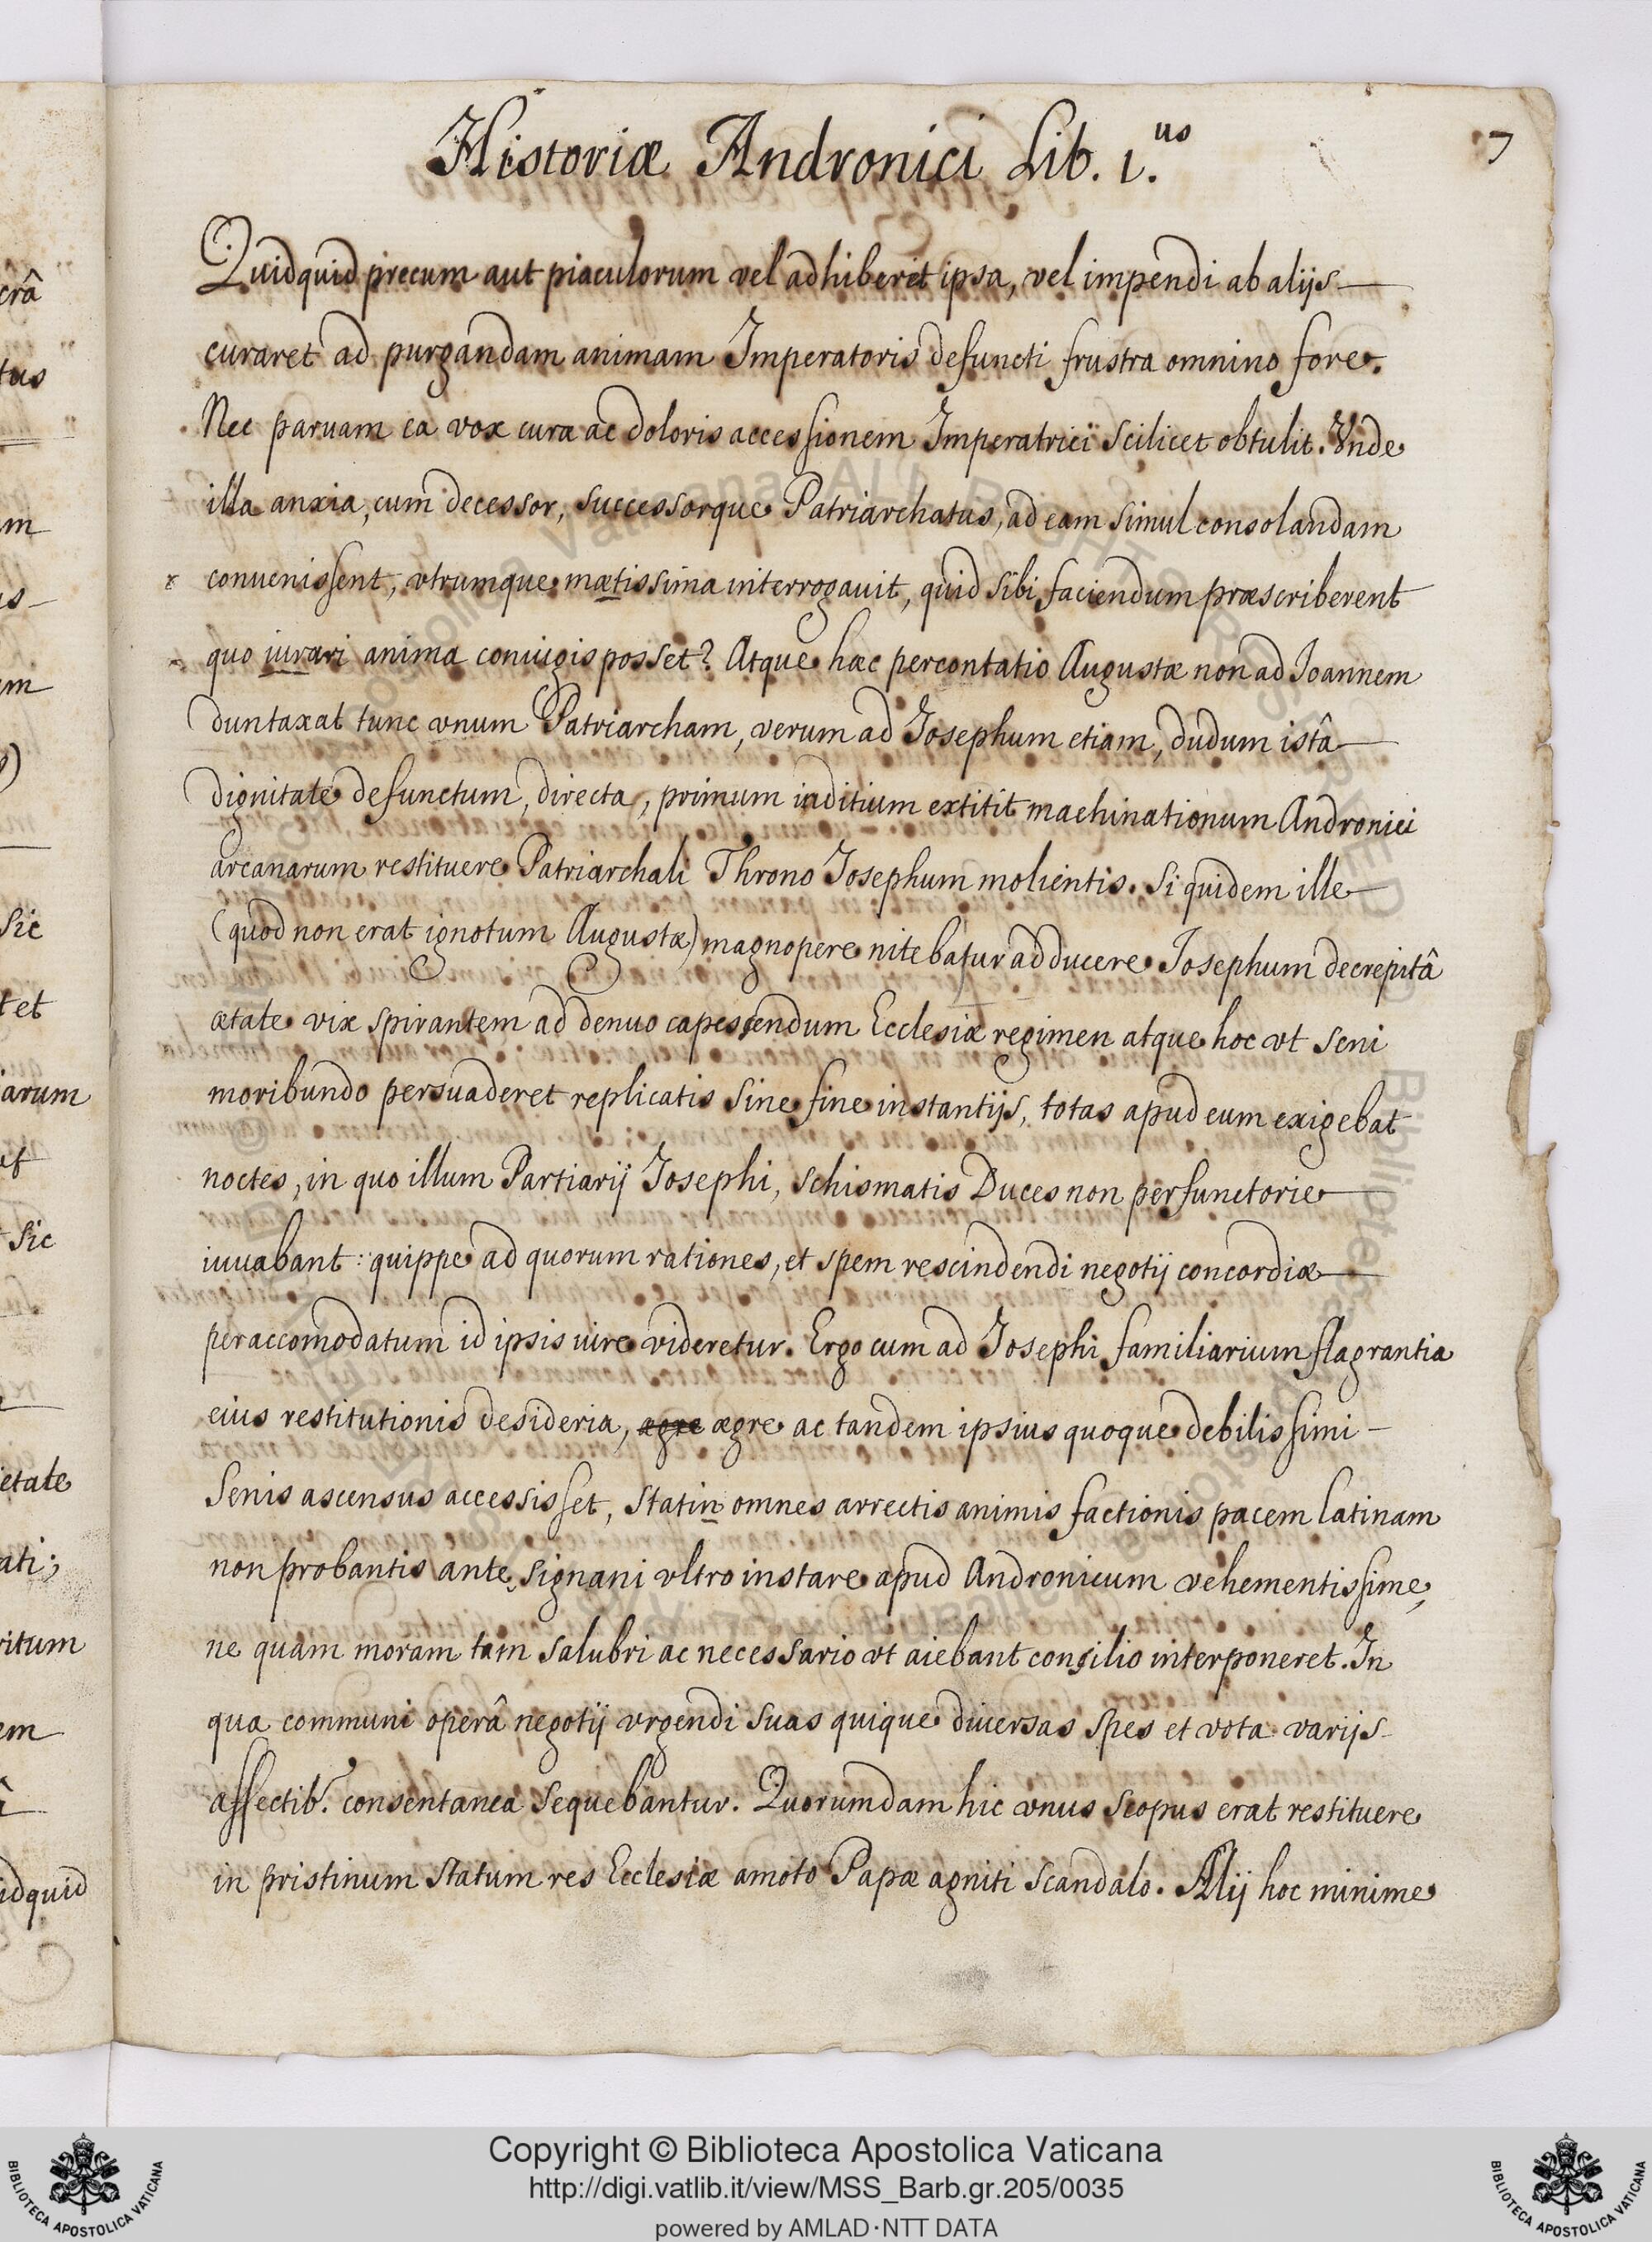 Historiæ Andronici Lib. 1.us
7
Quidquid precum aut piaculorum vel adhiberet ipsa, vel impendi ab alijs
curaret ad purgandam animam Imperatoris defuncti frustra omnino fore.
Nec paruam ea vox curæ ac doloris accessionem Imperatrici scilicet obtulit. Vnde
illa anxia, cum decessor, successorque Patriarchatus, ad eam simul consolandam
conuenissent, vtrumque mætissima interrogauit, quid sibi faciendum præscriberent
quo iurari anima coniugis posset? Atque hæc percontatio Augustæ non ad Joannem
duntaxat tunc vnum Patriarcham, verum ad Josephum etiam, dudum istâ
dignitate defunctum, directa, primum inditium extitit machinationum Andronici
arcanarum restituere Patriarchali Throno Josephum molientis. Si quidem ille
(quod non erat ignotum Augustæ) magnopere nitebatur adducere Josephum decrepitâ
ætate vix spirantem ad denuo capessendum Ecclesiæ regimen atque hoc vt seni
moribundo persuaderet replicatis sine fine instantijs, totas apud eum exigebat
noctes, in quo illum Partiarij Josephi, schismatis Duces non perfunctorie
iuuabant: quippe ad quorum rationes, et spem rescindendi negotij concordiæ
peraccomodatum id ipsis iure videretur. Ergo cum ad Josephi familiarium flagrantia
eius restitutionis desideria, ægre ægre ac tandem ipsius quoque debilissimi
senis ascensus accessisset, statin omnes arrectis animis factionis pacem latinam
non probantis ante signani vltro instare apud Andronicum vehementissime,
ne quam moram tam salubri ac necessario vt aiebant consilio interponeret. In
qua communi operâ negotij vrgendi suas quique diuersas spes et vota varijs
affectib. consentanea sequebantur. Quorumdam hic vnus scopus erat restituere
in pristinum statum res Ecclesiæ amoto Papæ agniti scandalo. Alij hoc minime
Copyright © Biblioteca Apostolica Vaticana
http://digi.vatlib.it/view/MSS_Barb.gr.205/0035
powered by AMLAD·NTT DATA
BIBLIOTECA APOSTOLICA VATICANA
BIBLIOTECA APOSTOLICA VATICANA